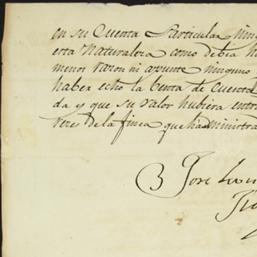 en su Cuenta Particular nin
esta naturaleza como debia h
menor razon ni apunte ninguno
haber echo la benta de cuenta
da y que su valor hubiera entr
res de la finca que ha administra
Jose